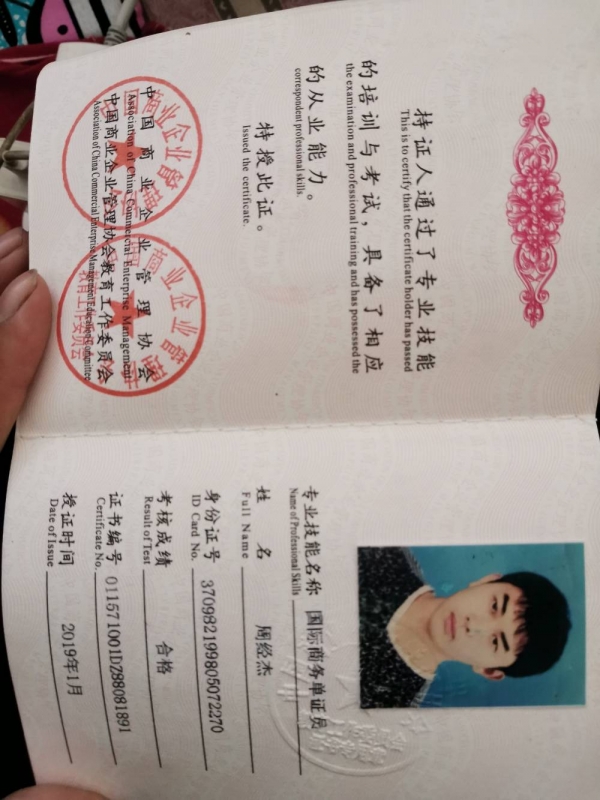 持证人通过了专业技能
This is to certify that the certificate holder has passed
的培训与考试，具备了相应
the examination and professional training and has possessed the
的从业能力。
correspondent professional skills.
特授此证。
Issued the certificate.
中国商业企业管理协会
Association of China Commercial Enterprise Management
中国商业企业管理协会教育工作委员会
Association of China Commercial Enterprise Management Education Committee
商业企业管
商业企业管
教育工作委员会
专业技能名称 国际商务单证员
Name of Professional Skills
姓 名 周经杰
Full Name
身份证号 370982199805072270
ID Card No.
考核成绩 合格
Result of Test
证书编号 011571001DZ88081891
Certificate No.
授证时间 2019年1月
Date of Issue